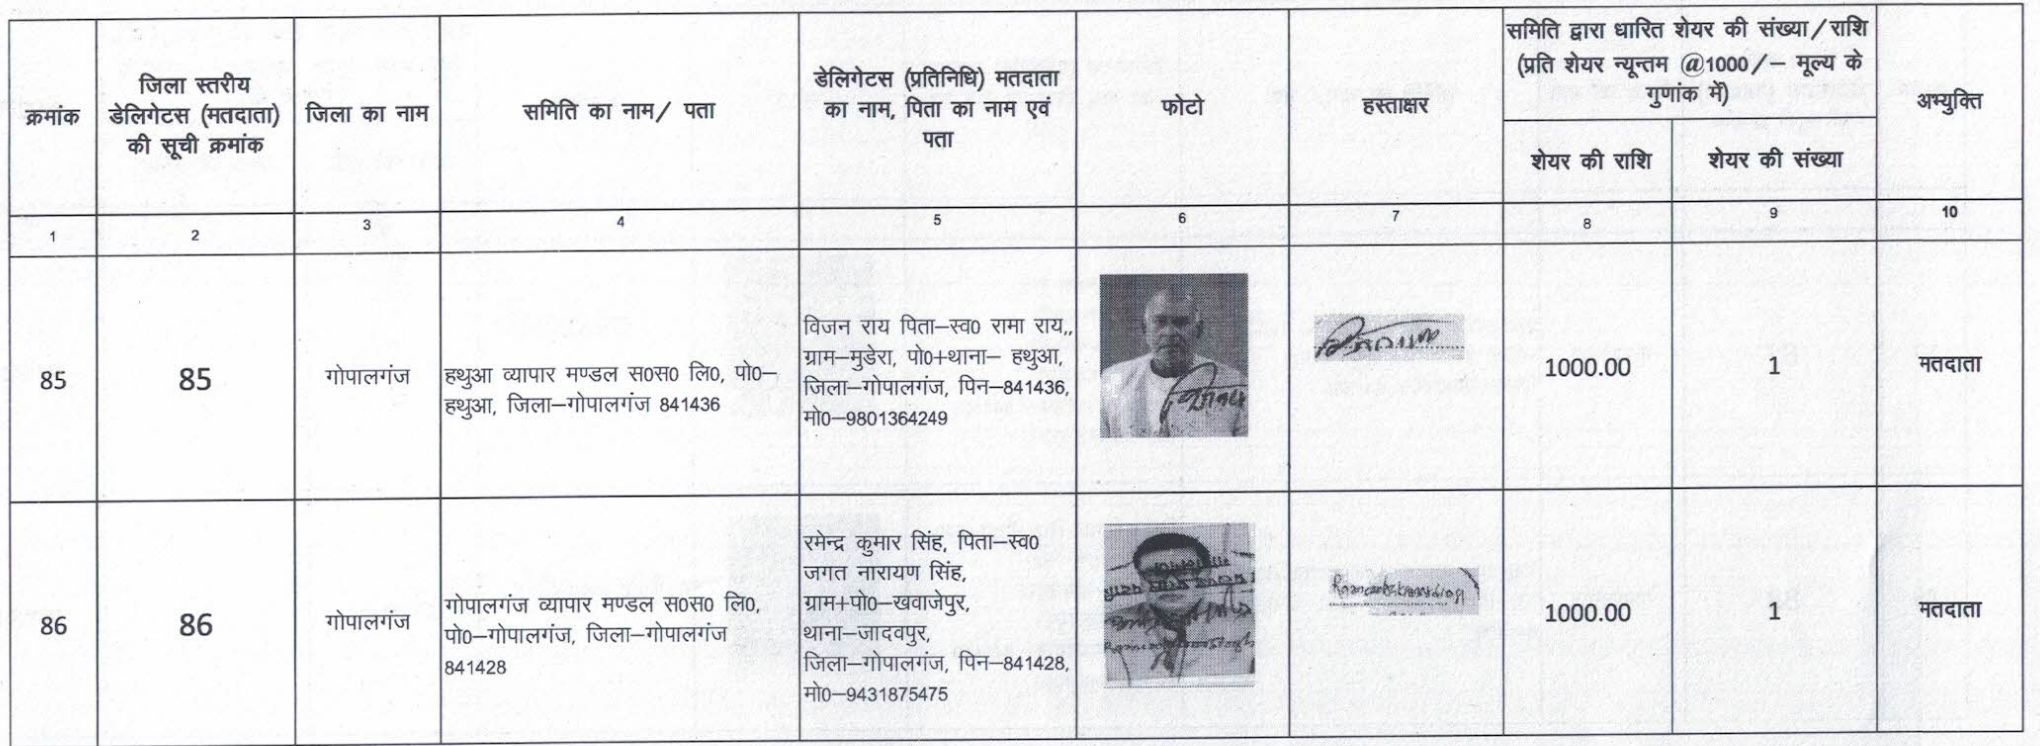 क्रमांक
जिला स्तरीय
डेलिगेटस (मतदाता)
की सूची क्रमांक
जिला का नाम
समिति का नाम/ पता
डेलिगेटस (प्रतिनिधि) मतदाता
का नाम, पिता का नाम एवं
पता
फोटो
हस्ताक्षर
समिति द्वारा धारित शेयर की संख्या/राशि
(प्रति शेयर न्यून्तम @1000/– मूल्य के
गुणांक में)
शेयर की राशि
शेयर की संख्या
अभ्युक्ति
1
2
3
4
5
6
7
8
9
10
85
85
गोपालगंज
हथुआ व्यापार मण्डल स0स0 लि0, पो0–
हथुआ, जिला–गोपालगंज 841436
विजन राय पिता–स्व0 रामा राय,,
ग्राम–मुडेरा, पो0+थाना– हथुआ,
जिला–गोपालगंज, पिन–841436,
मो0–9801364249
1000.00
1
मतदाता
86
86
गोपालगंज
गोपालगंज व्यापार मण्डल स0स0 लि0,
पो0–गोपालगंज, जिला–गोपालगंज
841428
रमेन्द्र कुमार सिंह, पिता–स्व0
जगत नारायण सिंह,
ग्राम+पो0–खवाजेपुर,
थाना–जादवपुर,
जिला–गोपालगंज, पिन–841428,
मो0–9431875475
1000.00
1
मतदाता